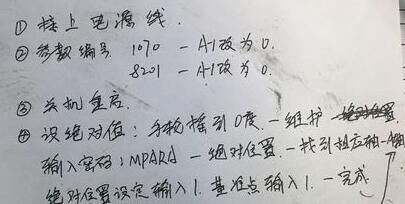 ① 接上电源线.
② 参数编号 1070 - A-1改为0.
8201 - A-1改为0.
③ 关机重启.
④ 设绝对值:手轮摇到0度.-维护-
输入密码:MPARA-绝对位置.-找到相应轴-
绝对位置设定输入1.基准点输入1.-完成